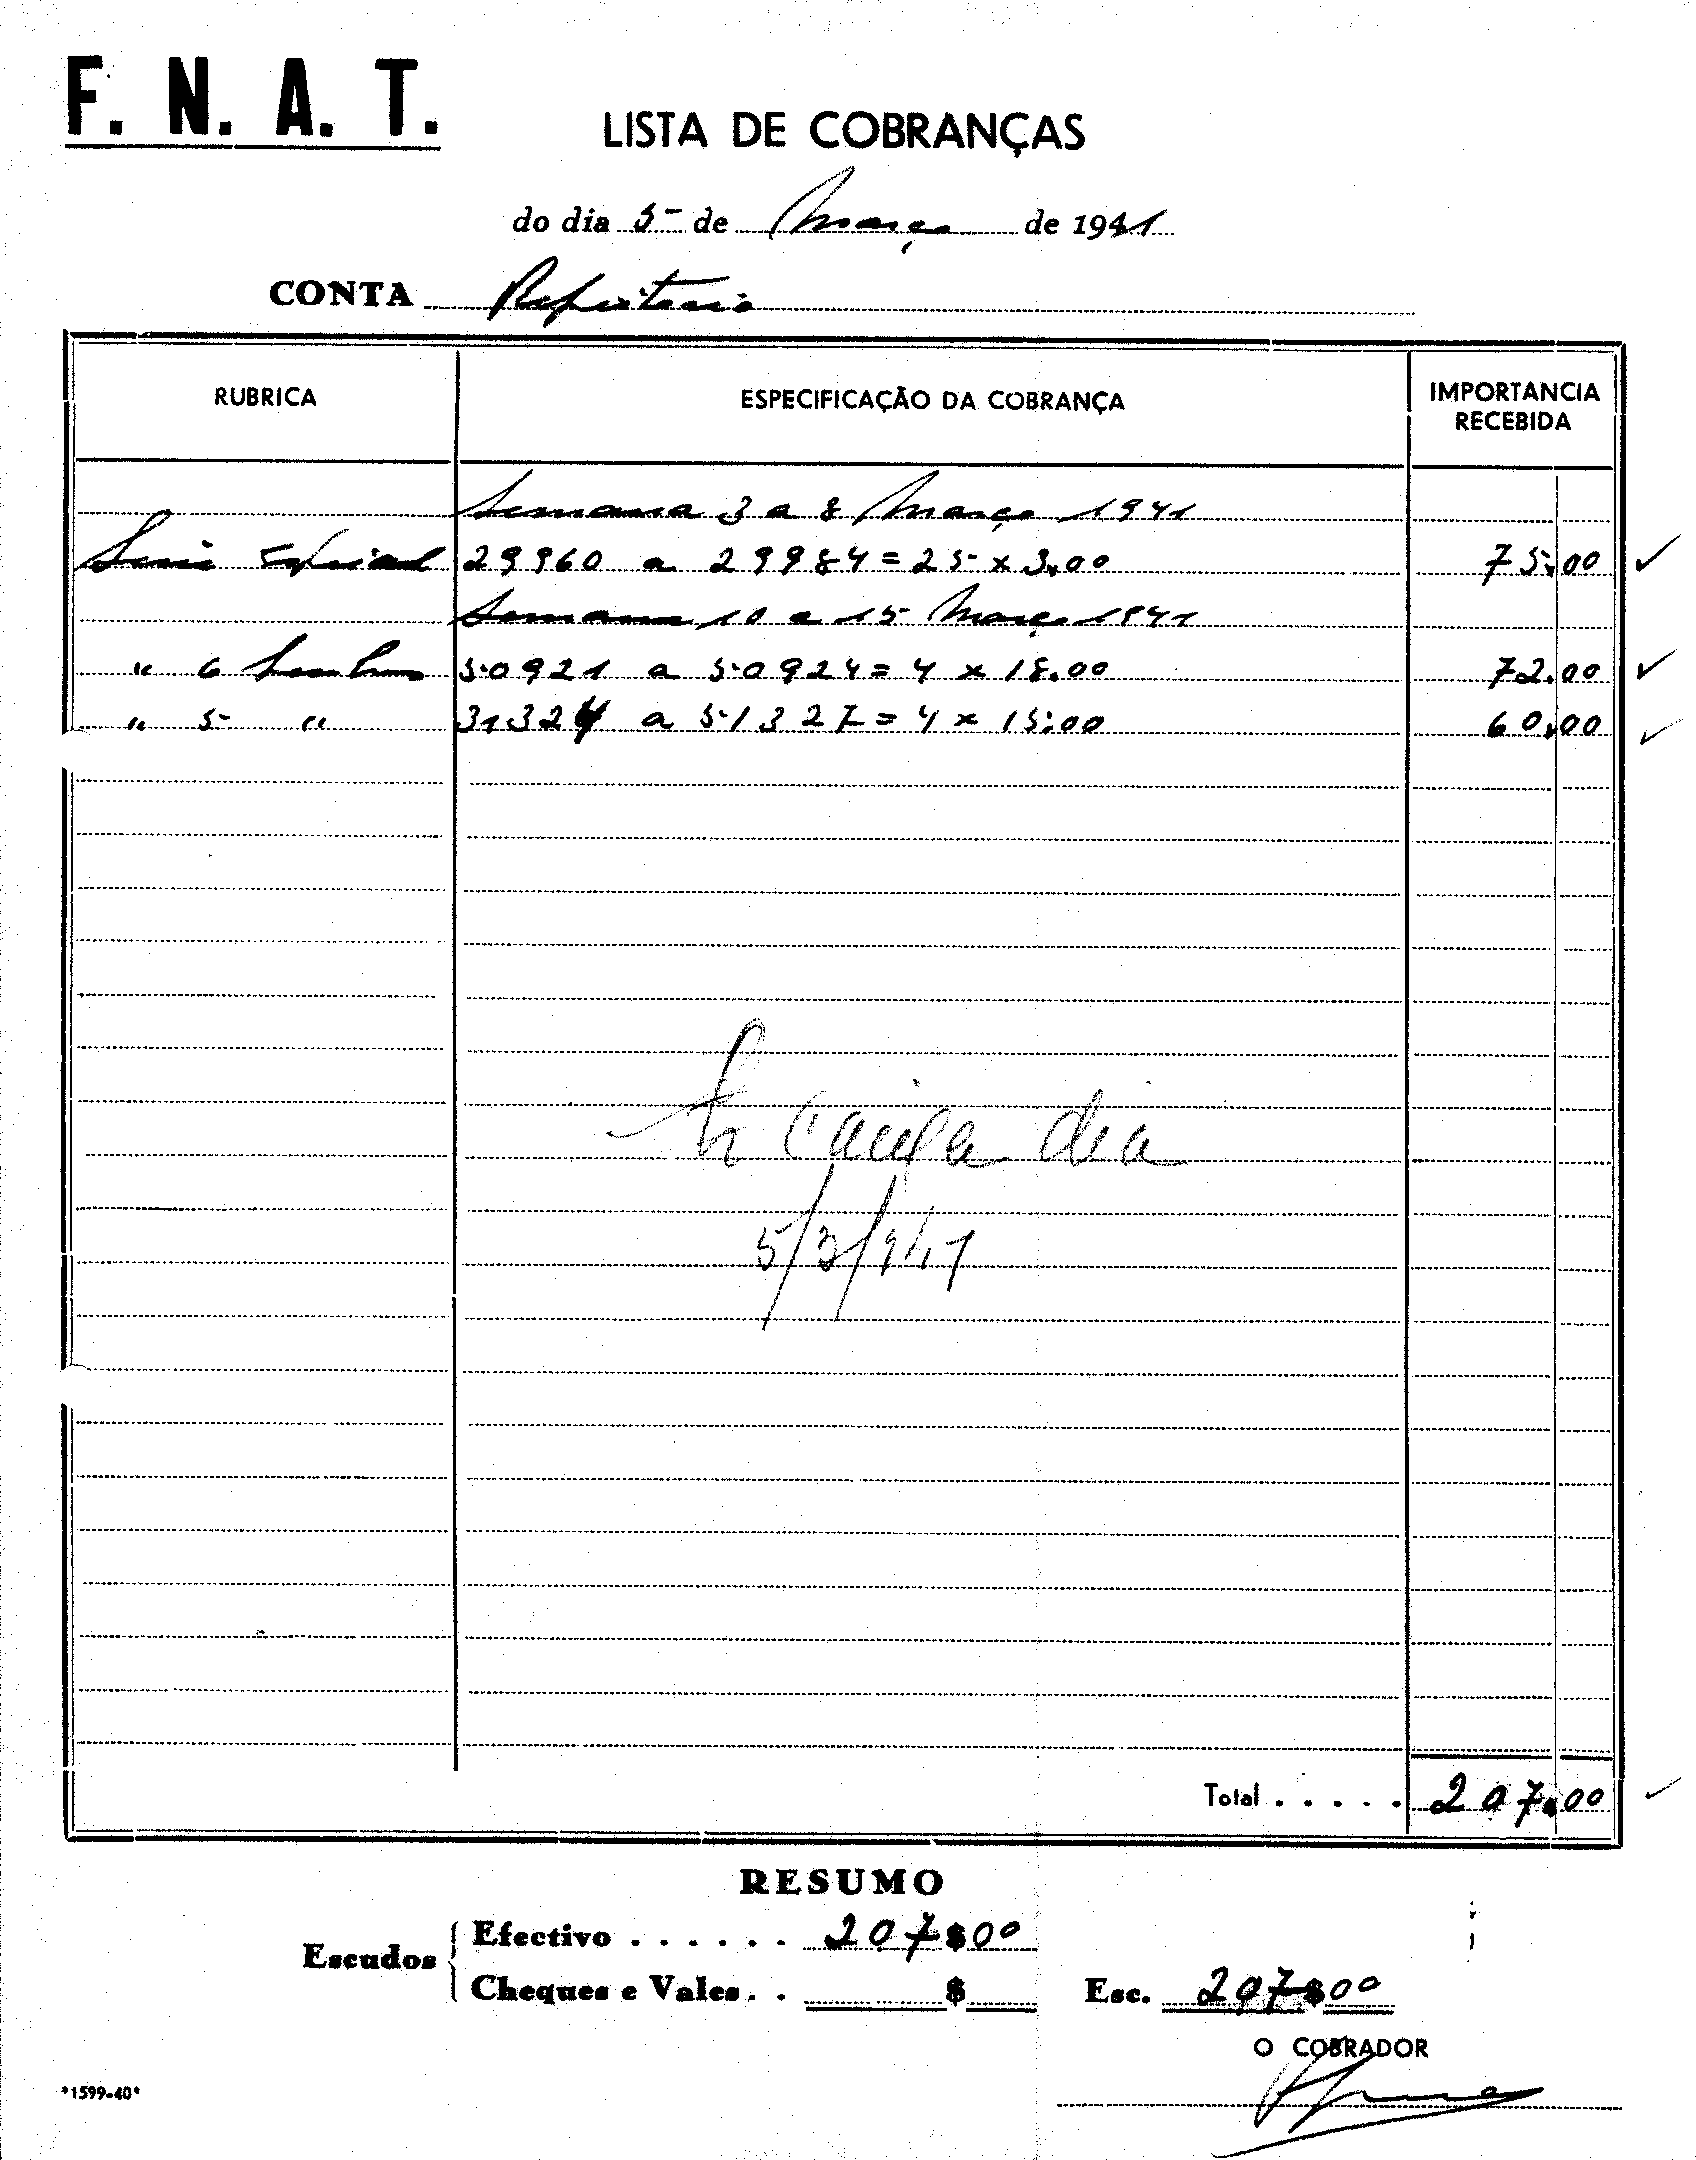 F. N. A. T.
LISTA DE COBRANÇAS
do dia 5 de Março de 1941
CONTA Refeitorio
RUBRICA ESPECIFICAÇÃO DA COBRANÇA IMPORTANCIA RECEBIDA
Semana 3 a 8 Março 1941
29960 a 29984 = 25 x 3.00 75.00
Semana 10 a 15 Março 1941
" 6 Senhas 50921 a 50924 = 4 x 18.00 72.00
" 5 " 31324 a 51327 = 4 x 15.00 60.00
caixa dia
5/3/941
Total . . . . . 207.00
RESUMO
Escudos
Efectivo . . . . . . 207$00
Cheques e Vales . . $
Esc. 207$00
O COBRADOR
*1599-40*